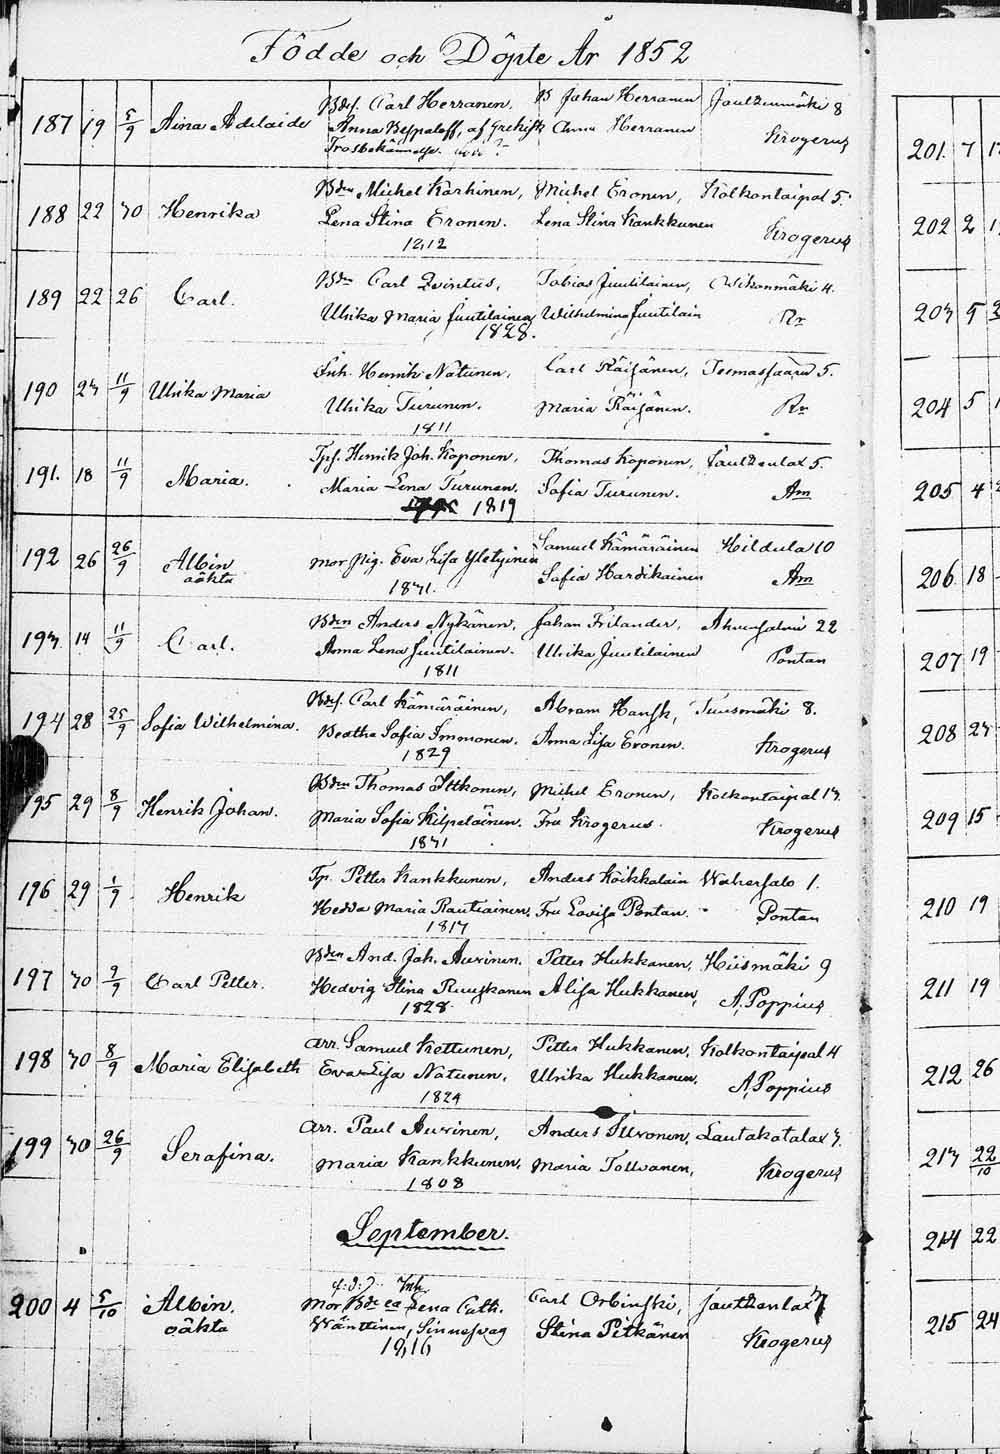 Födde och Döpte År 1852
187 19 5/9 Aina Adelaide Bdsf. Carl Herranen, B Johan Herranen Jaulkunmäki 8
Anna Bespaloff, af Grekisk Anna Herranen Krogerus
Trosbekännelse.
188 22 30 Henrika Bden Michel Karhinen, Michel Eronen, Kolkontaipal 5.
Lena Stina Eronen. Lena Stina Kankkunen Krogerus
12,12
189 22 26 Carl. Bdn Carl Qvintus, Tobias Juutilainen, Wikonmäki 4.
Ulrika Maria Juutilainen Wilhelmina Juutilain Rr
1828.
190 23 11/9 Ulrika Maria Inh. Henrik Natunen, Carl Räisänen, 5.
Ulrika Turunen. Maria Räisänen. Rr
1811
191. 18 11/9 Maria. Tpf. Henrik Joh. Koponen, Thomas Koponen, 5.
Maria Lena Turunen. Sofia Turunen. Am
1819
192 26 26/9 Albin Mor Pig. Eva Lisa Yletyinen Samuel Kämäräinen Hildula 10
oäkta Sofia Hardikainen Am
1831.
193. 14 11/9 Carl. Bden Anders Nykänen, Johan Frilander, Ahvensalmi 22
Anna Lena Juutilainen. Ulrika Juutilainen Pontan
1811
194 28 25/9 Sofia Wilhelmina. Bdsf. Carl Kämäräinen, Abram Hansk, Tuusmäki 8.
Beatha Sofia Immonen. Anna Lisa Eronen. Krogerus
1829
195 29 8/9 Henrik Johan. Bden Thomas Ittkonen, Michel Eronen, Kolkontaipal 13.
Maria Sofia Kilpeläinen. Fru Krogerus. Krogerus
1831
196 29 1/9 Henrik Tp. Petter Kankkunen, Anders Koikkalain Wahersalo 1.
Hedda Maria Rautiainen, Fru Lovisa Pontan. Pontan
1817
197 30 9/9 Carl Petter. Bden And. Joh. Auvinen. Petter Hukkanen, Hiismäki 9
Hedvig Stina Ruuskanen Alisa Hukkanen, A. Poppius
1828
198 30 8/9 Maria Elisabeth Arr. Samuel Kettunen, Petter Hukkanen, Kolkontaipal 4
Eva Lisa Natunen, Ulrika Hukkanen, A. Poppius
1824
199 30 26/9 Serafina. Arr. Paul Auvinen, Anders Turonen, Lautakotalax 3.
Maria Kankkunen, Maria Tollvanen, Krogerus
1808
September.
Inh.
200 4 5/10 Albin. Mor Bde Lena Cath. Carl Orbinski, 7
oäkta Wänttinen, Sinnesvag Stina Pitkänen Krogerus
1816
201. 7
202 2
203 5
204 5
205 4
206 18
207 19
208 23
209 15
210 19
211 19
212 26
213 22/10
214 22
215 24